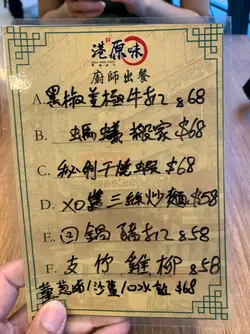 港原味
廚師出餐
A.黑椒薑極牛扒 $68
B. 螞蟻搬家 $68
C. 秘制干燒蝦 $68
D. XO醬三絲炒麵 $58
E. 回鍋豬扒 $58
F. 支竹雞柳 $58
$68